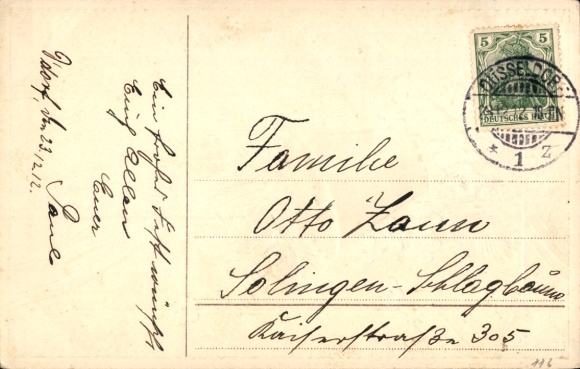 D'dorf, den 23.12.12.
Ein frohes Fest wünscht
Euch Allen
Euer
Paul
5 5
DÜSSELDORF
DEUTSCHES REICH
* 1 z
Familie
Otto Zaun
Solingen-Schlagbaum
Kaiserstraße 305
116